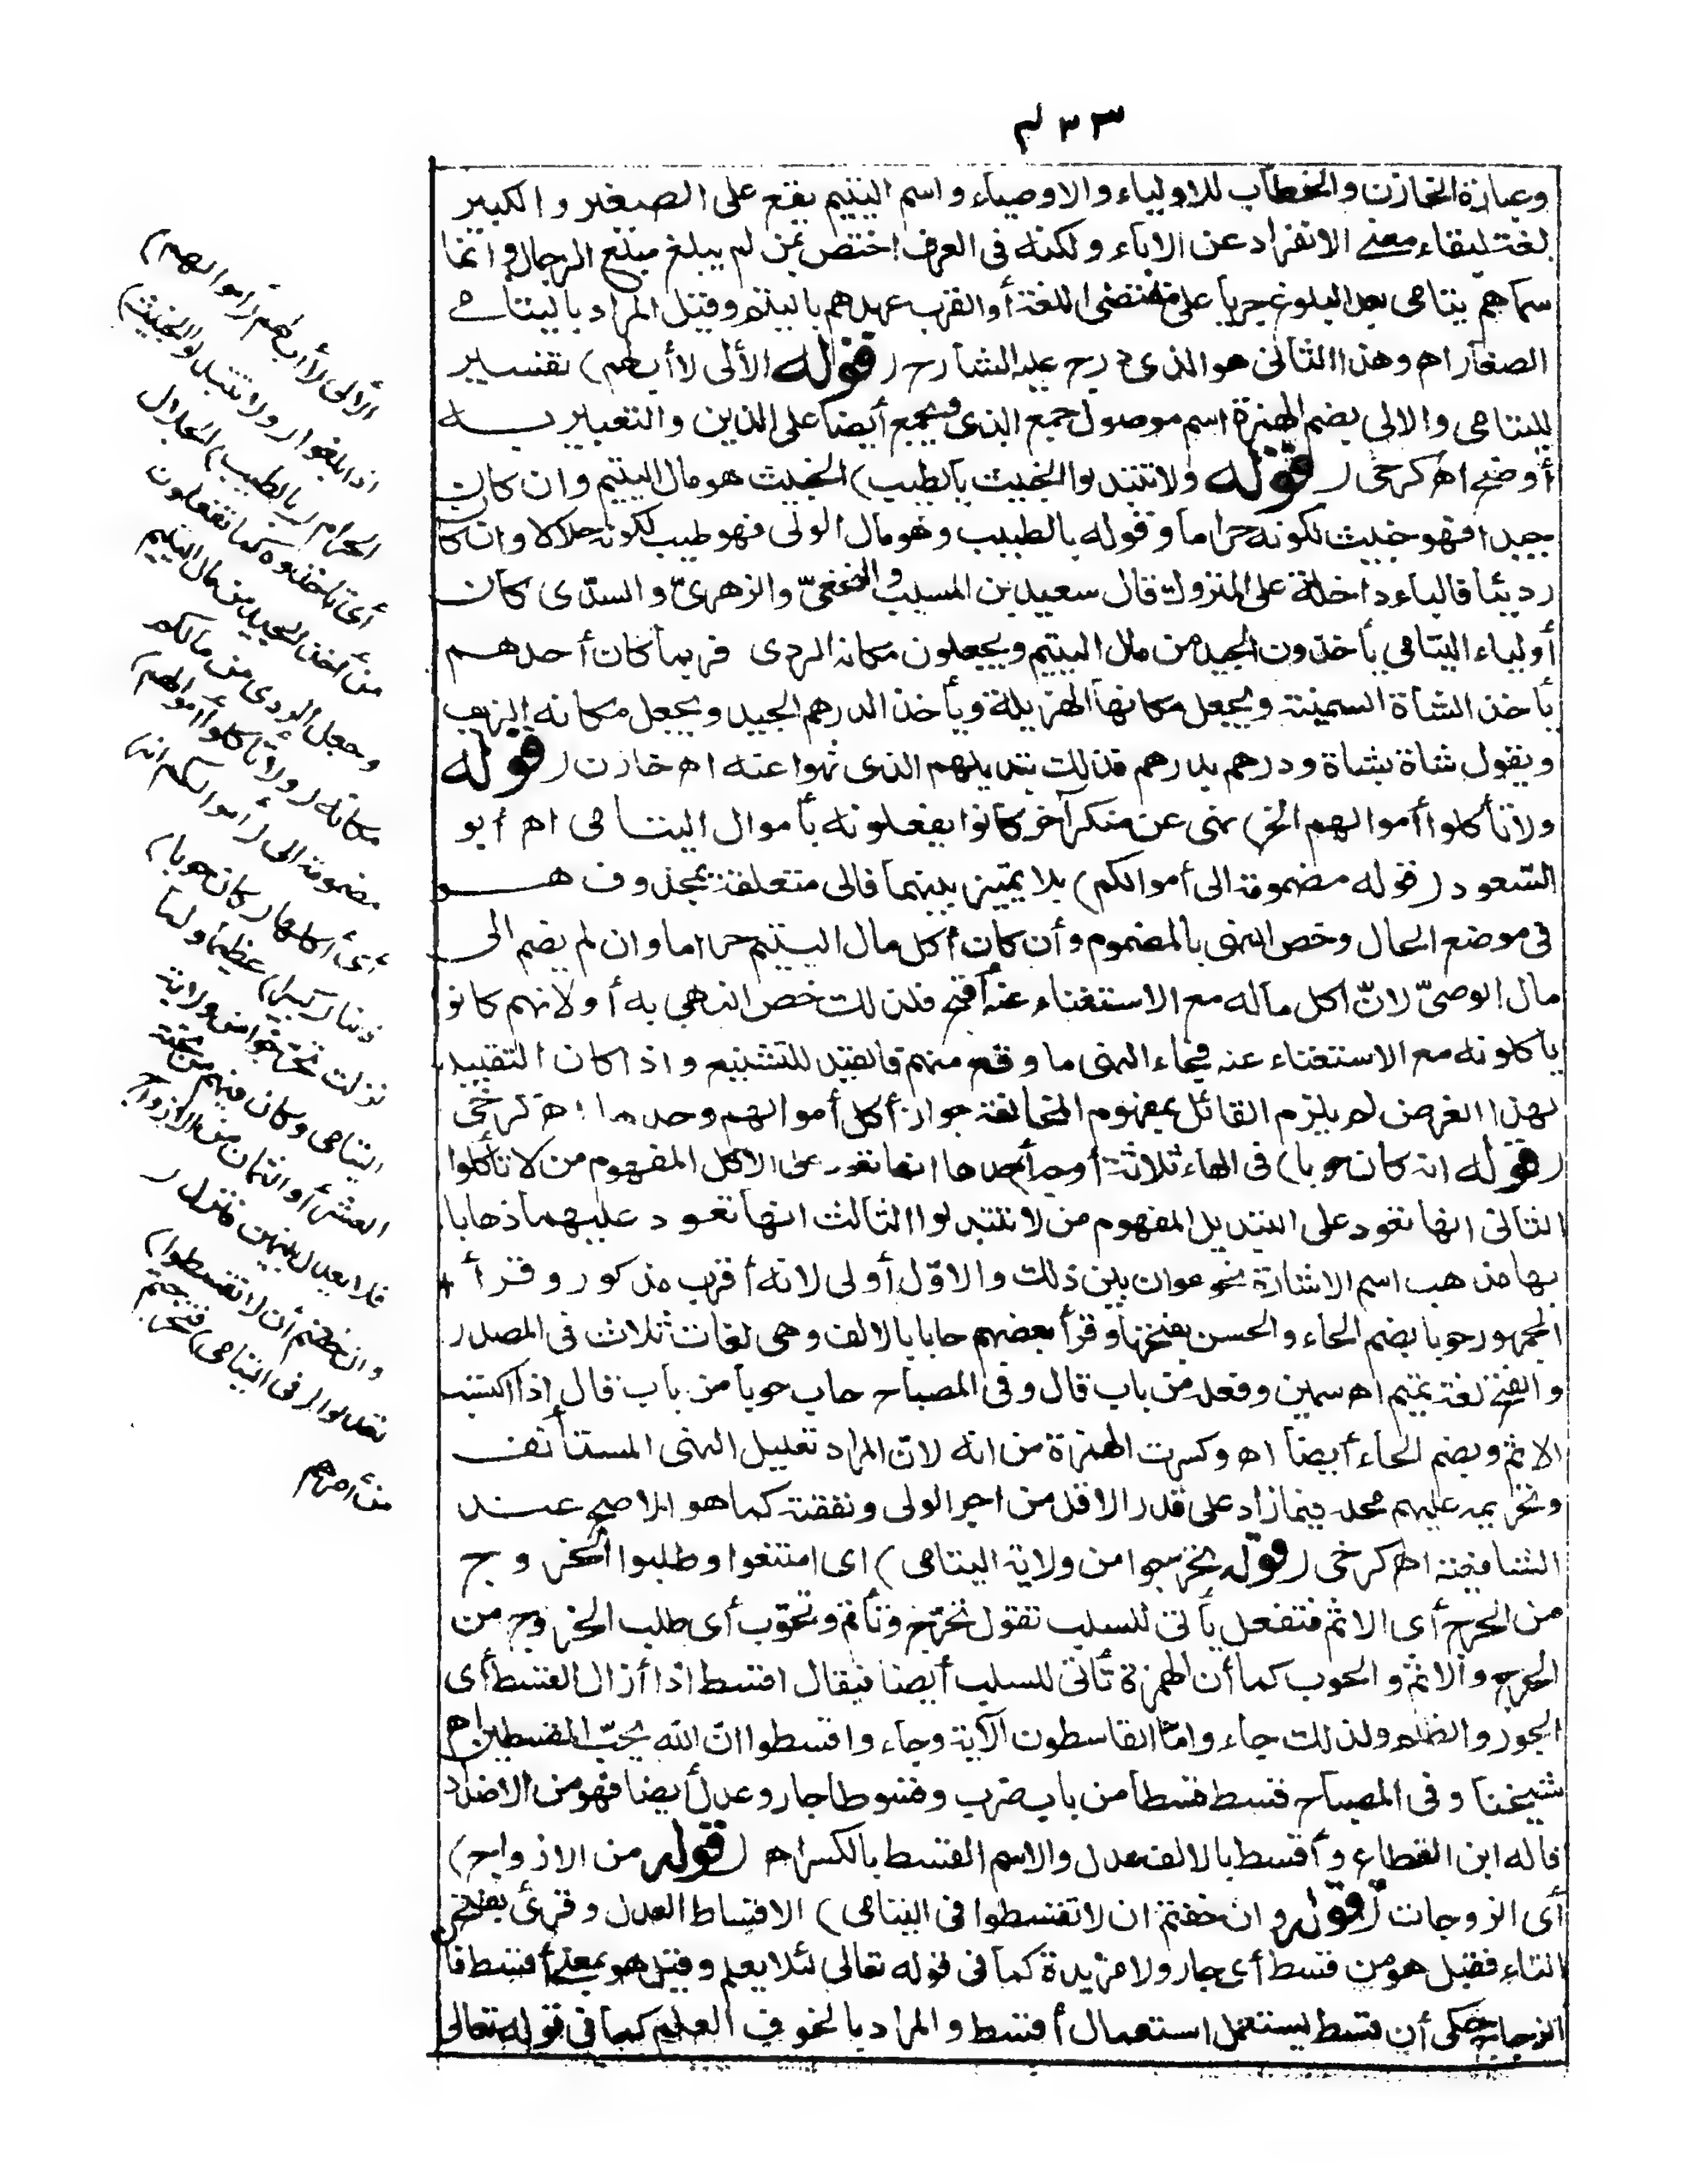 ٤٣٣
وعبارة الخازن والخطاب للاولياء والاوصياء واسم اليتيم يقع على الصغير والكبير
لغة لبقاء معنى الانفراد عن الاباء ولكنه فى العرف اختص بمن لم يبلغ مبلغ الرجال وانما
سماهم يتامى بعد البلوغ جريا على مقتضى اللغة أو لقرب عهدهم باليتم وقيل المراد باليتامى
الصغار اه وهذا الثانى هو الذى درج عليه الشارح (قوله الألى لا أب لهم) تفسير
لليتامى والالى بضم الهمزة اسم موصول جمع الذى ويجمع أيضا على الذين والتعبير به
أوضح اه كرخى (قوله ولا تتبدلوا الخبيث بالطيب) الخبيث هو مال اليتيم وان كان
جيدا فهو خبيث لكونه حراما وقوله بالطيب وهو مال الولى فهو طيب لكونه حلالا وان كان
رديئا فالباء داخلة على المتروك قال سعيد بن المسيب والنخعىّ والزهرىّ والسدّى كان
أولياء اليتامى يأخذون الجيد من مال اليتيم ويجعلون مكانه الردى فربما كان أحدهم
يأخذ الشاة السمينة ويجعل مكانها الهزيلة ويأخذ الدرهم الجيد ويجعل مكانه الزيف
ويقول شاة بشاة ودرهم بدرهم فذلك تبديلهم الذى نهوا عنه اه خازن (قوله
ولا تأكلوا أموالهم الخ) نهى عن منكر آخر كانوا يفعلونه بأموال اليتامى اه أبو
السعود (قوله مضمومة الى أموالكم) بلا تمييز بينهما فالى متعلقة بمحذوف هو
فى موضع الحال وخص النهى بالمضموم وأن كان أكل مال اليتيم حراما وان لم يضم الى
مال الوصىّ لانّ اكل ماله مع الاستغناء عنه أقبح فلذلك خص النهى به أو لانهم كانوا
يأكلونه مع الاستغناء عنه فجاء النهى ما وقع منهم فالقيد للتشنيع واذا كان التقييد
لهذا الغرض لم يلزم القائل بمفهوم المخالفة جواز أكل أموالهم وحدها اه كرخى
(قوله انه كان حوبا) فى الهاء ثلاثة أوجه أحدها انها تعود على الاكل المفهوم من لا تأكلوا
الثانى انها تعود على التبديل المفهوم من لا تتبدلوا الثالث انها تعود عليهما ذهابا
بها مذهب اسم الاشارة نحو عوان بين ذلك والاوّل أولى لانه أقرب مذكور وقرأ
الجمهور حوبا بضم الحاء والحسن بفتحها وقرأ بعضهم حابا بالالف وهى لغات ثلاث فى المصدر
والفتح لغة تميم اه سمين وفعله من باب قال وفى المصباح حاب حوبا من باب قال اذا اكتسب
الاثم وبضم الحاء أيضا اه وكسرت الهمزة من انه لانّ المراد تعليل النهى المستأنف
وتحريمه عليهم محله فيما زاد على قدر الاقل من اجر الولى ونفقته كما هو الاصح عند
الشافعية اه كرخى (قوله تحرجوا من ولاية اليتامى) اى امتنعوا وطلبوا الخروج
من الحرج أى الاثم فتفعل يأتى للسلب تقول تحرّج وتأثم وتحوّب أى طلب الخروج من
الحرج والاثم والحوب كما أن الهمزة تأتى للسلب أيضا فيقال اقسط اذا أزال القسط أى
الجور والظلم ولذلك جاء وامّا القاسطون الآية وجاء واقسطوا انّ الله يحبّ المقسطين اه
شيخنا وفى المصباح قسط قسطا من باب ضرب وقسوطا جار وعدل أيضا فهو من الاضداد
قاله ابن القطاع وأقسط بالالف عدل والاسم القسط بالكسر اه (قوله من الازواج)
أى الزوجات (قوله وان خفتم ان لا تقسطوا فى اليتامى) الاقساط العدل وقرئ بفتح
التاء فقيل هو من قسط أى جار ولا مزيدة كما فى قوله تعالى لئلا يعلم وقيل هو بمعنى أقسط فان
الزجاج حكى أن قسط يستعمل استعمال أقسط والمراد بالخوف العلم كما فى قوله تعالى
الألى لا أب لهم (أموالهم)
اذا بلغوا (ولا تتبدلوا الخبيث)
الحرام (بالطيب) الحلال
أى تأخذوه كما تفعلون
من أخذ الجيد من مال اليتيم
وجعل الردى من مالكم
مكانه (ولا تأكلوا أموالهم)
مضمومة الى (أموالكم انه)
أى أكلها (كان حوبا)
ذنبا (كبيرا) عظيما ولما
نزلت تحرّجوا من ولاية
اليتامى وكان فيهم من تحته
العشر أو الثمان من الازواج
فلا يعدل بينهن فنزل (
وان خفتم أن لا تقسطوا)
تعدلوا (فى اليتامى) فتحرجتم
من أمرهم